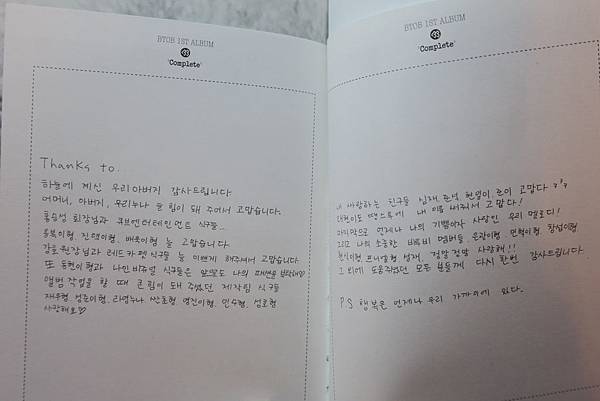 BTOB 1ST ALBUM
'Complete'
Thanks to.
하늘에 계신 우리아버지 감사드립니다
어머니, 아버지, 우리누나 늘 힘이 돼 주셔서 고맙습니다.
홍승성 회장님과 큐브엔터테인먼트 식구들..
늘 고맙습니다
원장님과 레드카펫식구들 늘 이쁘게 해주셔서 고맙습니다
또 동현이형과 나인비주얼 식구들은 앞으로도 나의 패션을 부탁해♡
앨범 작업을 할 때 큰 힘이 돼 주셨던 제작팀 식구들
사랑해요♡
BTOB 1ST ALBUM
'Complete'
내 사랑하는 친구들 고맙다 ㅋㅋ
내 이름 써줘서 고맙다!
마지막으로 언제나 나의 기쁨이자 사랑인 우리 멜로디!
그리고 나의 소중한 비투비 멤버들 은광이형, 민혁이형, 창섭이형
현식이형 프니엘형 성재, 정말정말 사랑해!!
그 외에 도움주셨던 모든 분들께 다시 한번 감사드립니다.
P.S 행복은 언제나 우리 가까이에 있다.